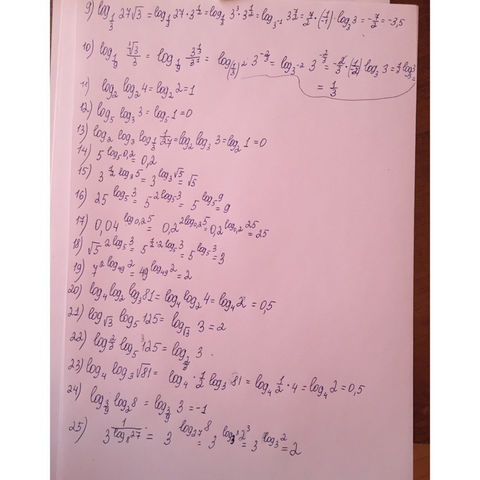 9) log_{1/3} 27√3 = log_{1/3} 27·3^{1/2} = log_{1/3} 3^3·3^{1/2} = log_{3^{-1}} 3^{7/2} = 7/2·(1/-1)·log_3 3 = -7/2 = -3,5
10) log_{1/9} ∛3/3 = log_{1/9} 3^{1/3}/3^1 = 3^{-2/3} = log_{3^{-2}} 3^{-2/3} = -2/3·(-1/2) log_3 3
= 1/3
11) log_2 log_2 4 = log_2 2 = 1
12) log_5 log_3 3 = log_5 1 = 0
13) log_2 log_3 log_{1/3} 1/27 = log_2 log_3 3 = log_2 1 = 0
14) 5^{log_5 0,2} = 0,2
15) 3^{1/2 log_3 5} = 3^{log_3 √5} = √5
16) 25^{log_5 3} = 5^{2 log_5 3} = 5^{log_5 9} = 9
17) 0,04^{log_{0,2} 5} = 0,2^{2 log_{0,2} 5} = 0,2^{log_{0,2} 25} = 25
18) √5^{2 log_5 3} = 5^{1/2·2 log_5 3} = 5^{log_5 3} = 3
19) 7^{2 log_{49} 2} = 49^{log_{49} 2} = 2
20) log_4 log_2 log_3 81 = log_4 log_2 4 = log_4 2 = 0,5
21) log_{√3} log_5 125 = log_{√3} 3 = 2
22) log_5 125 = 3
23) log_4 log_3 √81 = log_4 1/2 log_3 81 = log_4 1/2·4 = log_4 2 = 0,5
24) log_2 8 = 3 = -1
25) 3^{1/log_8 27} = 3^{log_{27} 8} = 3^{log_{3^3} 2^3} = 3^{log_3 2} = 2